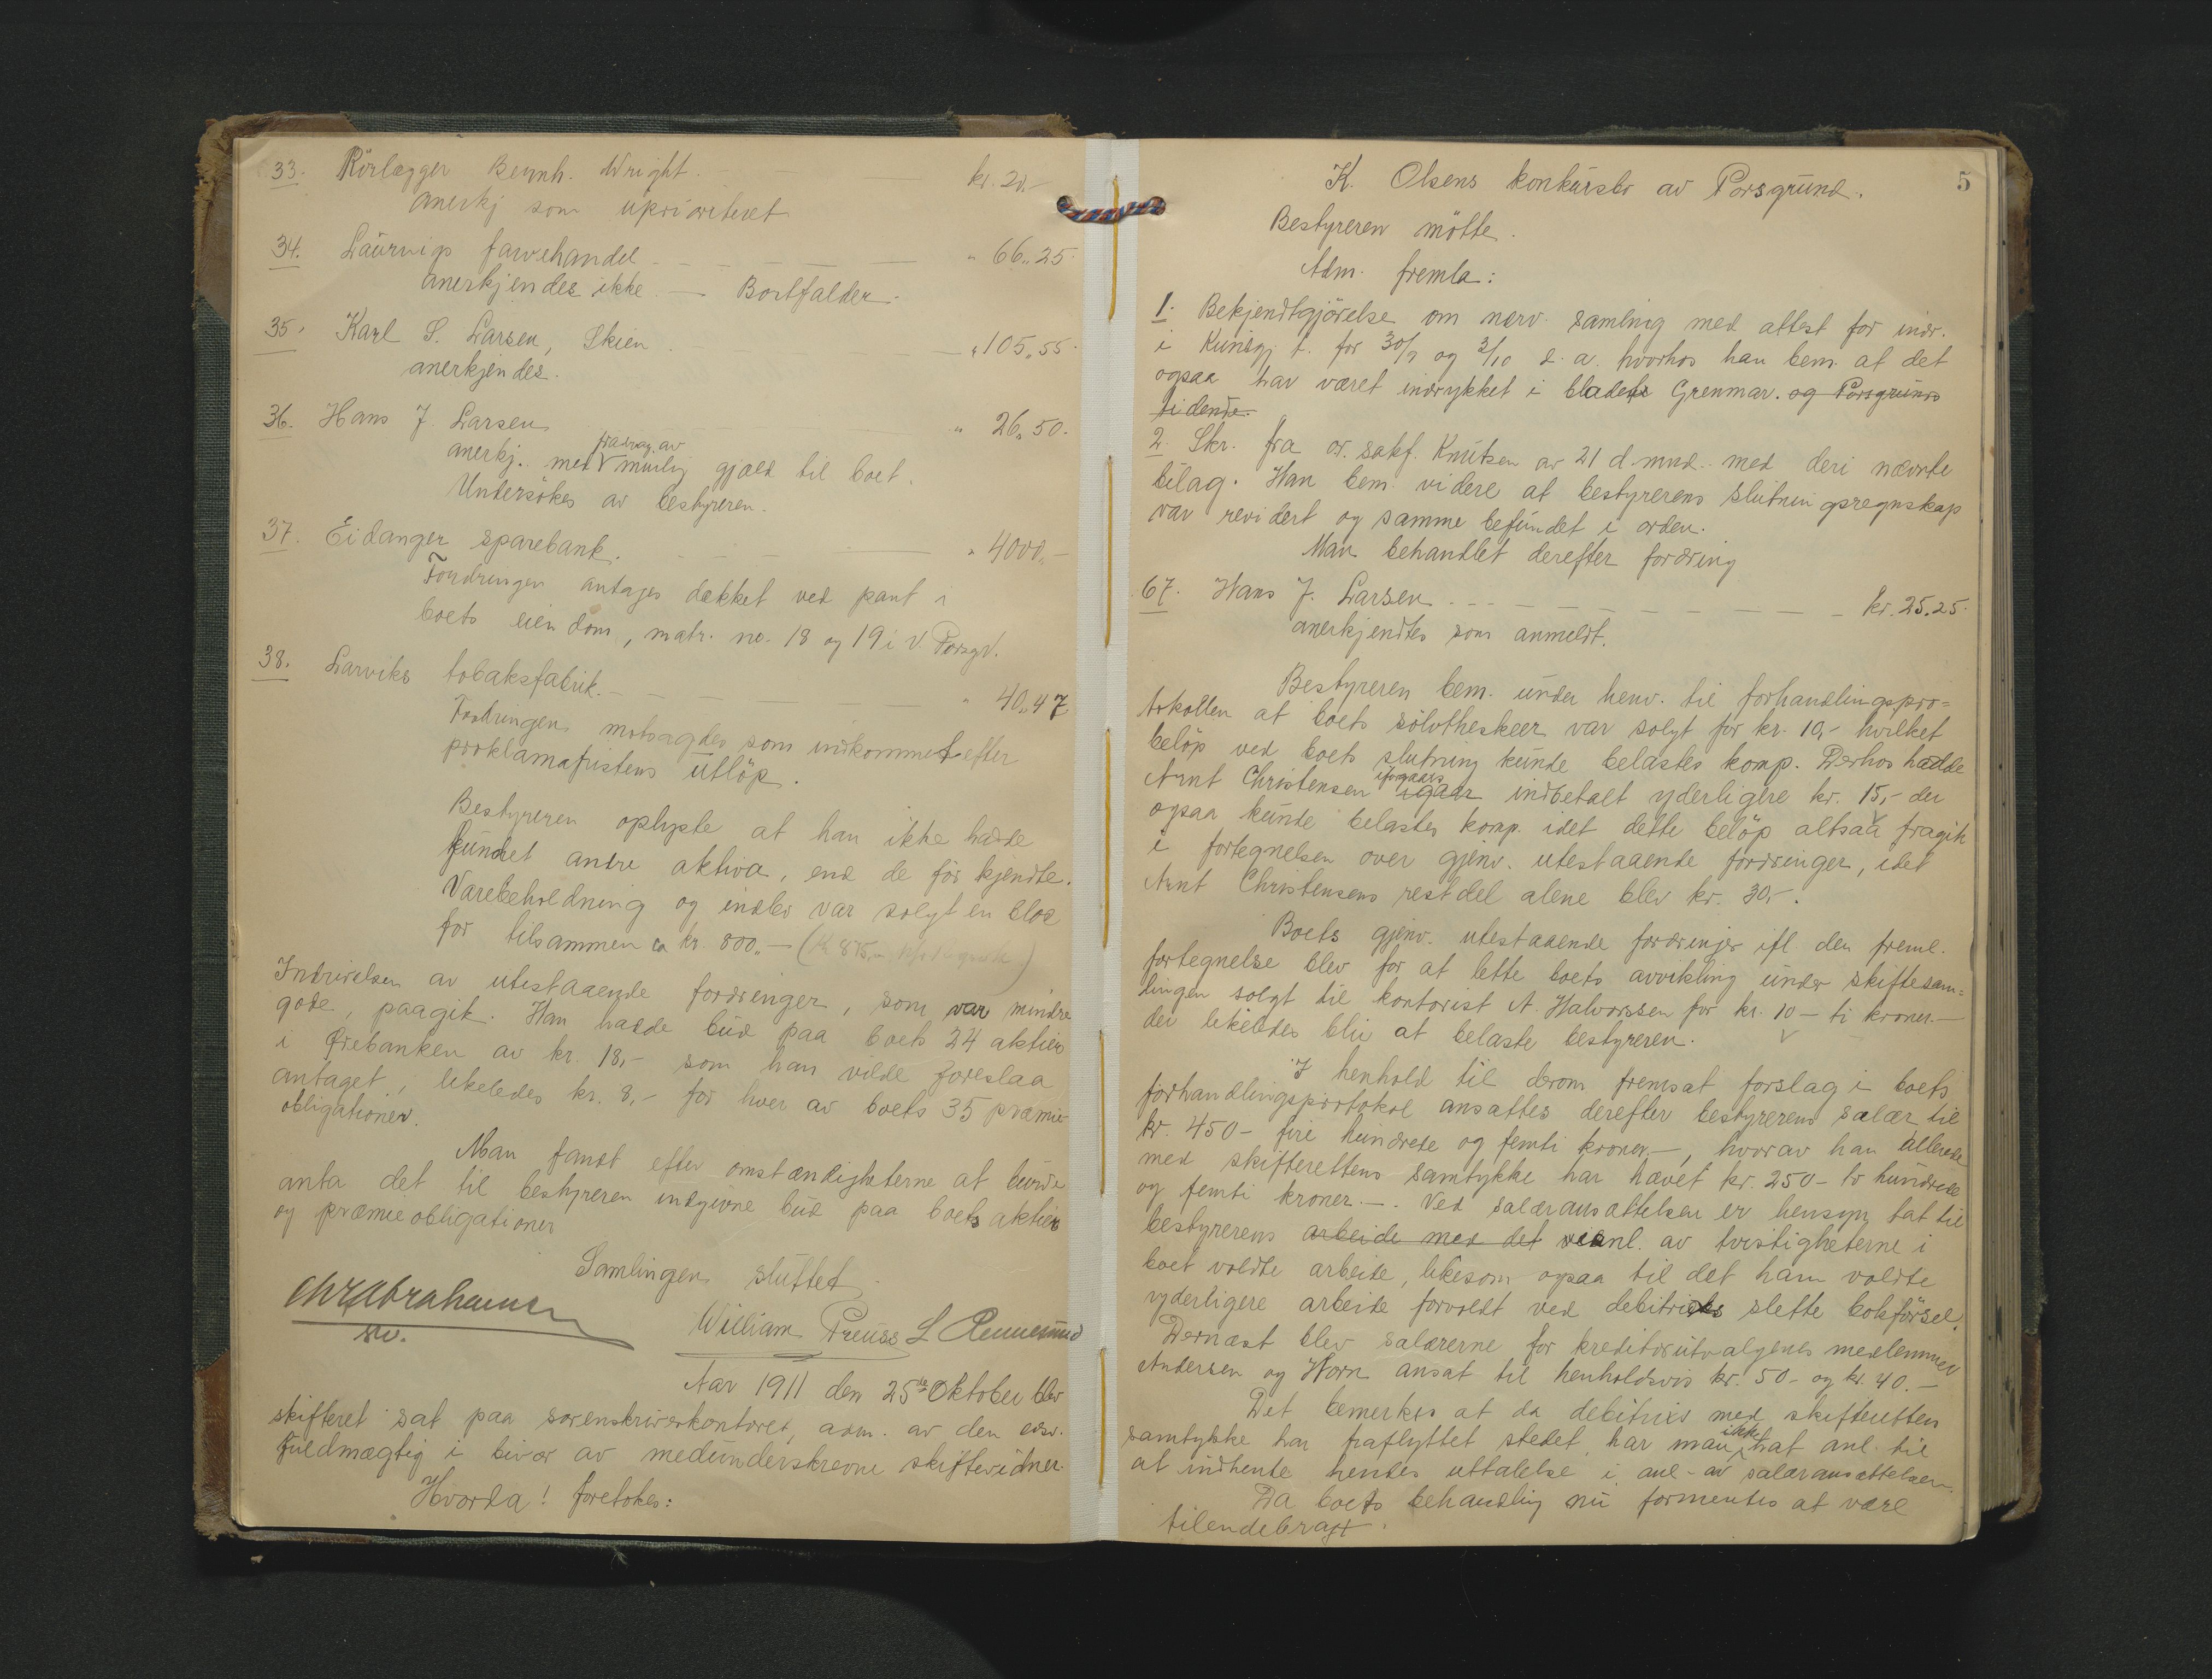 33. Rörlægger Bernh. Wright. kr. 20.-
anerkj som uprioriteret
34. Laurvigs farvehandel " 66.25.
anerkjendes ikke. — Bortfalder.
35. Karl S. Larsen, Skien " 105.55.
anerkjendes.
36. Hans J. Larsen " 26.50.
fradrag av
anerkj. med mulig gjæld til boet.
Undersökes av bestyreren.
37. Eidanger sparebank. " 4000.-
Fordringen antages dækket ved pant i
boets eiendom, matr. no. 18 og 19 i V. Porsgr.
38. Larviks tobaksfabrik. " 40.47
Fordringen motsagdes som indkommet efter
proklamafristens utlöp.
Bestyreren oplyste at han ikke hadde
fundet andre aktiva, end de för kjendte.
Varebeholdning og indbo var solgt en bloc
for tilsammen ca kr. 800.- (Kr 875,-
Indrivelsen av utestaaende fordringer, som var mindre
gode, paagik. Han hadde bud paa boets 24 aktier
i Örebanken av kr. 18,- som han vilde foreslaa
antaget, likeledes kr. 8,- for hver av boets 35 præmie
obligationer.
Man fandt efter omstændigheterne at burde
anta det til bestyreren indgivne bud paa boets aktier
og præmieobligationer
Samlingen sluttet.
Chr Abrahamsen
William Preuss L Rennesund
Aar 1911 den 25de Oktober blev
skifteret sat paa sorenskriverkontoret, adm. av den edsv.
fuldmægtig i bivær av medunderskrevne skiftevidner.
Hvorda! foretokes:
5
K. Olsens konkursbo av Porsgrund.
Bestyreren mötte.
Adm. fremla:
1. Bekjendtgjörelse om nærv. samling med attest for indr.
i Kundgj. t. for 30/9 og 3/10 d. a. hvorhos han bem. at det
ogsaa har været indrykket i bladet Grenmar. og Porsgrunds
tidende.
2. Skr. fra or. sakf. Knutsen av 21 d. mnd. med deri nævnte
bilag. Han bem. videre at bestyrerens slutningsregnskap
var revidert og samme befundet i orden.
Man behandlet derefter fordring
67. Hans J. Larsen kr. 25.25.
anerkjendtes som anmeldt.
Bestyreren bem. under henv. til forhandlingspro=
tokollen at boets sölvtheskeer var solgt for kr. 10,- hvilket
belöp ved boets slutning kunde belastes komp. Derhos hadde
Arnt Christensen igaar indbetalt yderligere kr. 15,- der
ogsaa kunde belastes komp. idet dette belöp altsaa fragik
i fortegnelsen over gjenv. utestaaende fordringer, idet
Arnt Christensens restdel alene blev kr. 30,-.
Boets gjenv. utestaaende fordringer ifl. den freml.
fortegnelse blev for at lette boets avvikling under skiftesam=
lingen solgt til kontorist A. Halvorssen for kr. 10 - ti kroner -
der likeledes blir at belaste bestyreren.
I henhold til derom fremsat forslag i boets
forhandlingsprotokol ansattes derefter bestyrerens salær til
kr. 450 - fire hundrede og femti kroner -, hvorav han allerede
med skifterettens samtykke har hævet kr. 250 - to hundrede
og femti kroner -. Ved salæransættelsen er hensyn tat til
bestyrerens arbeide med det vidl. av tvistigheterne i
boet voldte arbeide, likesom ogsaa til det ham voldte
yderligere arbeide forvoldt ved debitricis slette bokförsel.
Dernæst blev salærerne for kreditorutvalgets medlemmer
Andersen og Horn ansat til henholdsvis kr. 50 - og kr. 40. -
Det bemerkes at da debitrix med skifteretten
ikke
samtykke har fraflyttet stedet, har man hat anl. til
at indhente hendes uttalelse i anl. av salæransættelsen.
Da boets behandling nu formentes at være
tilendebragt.